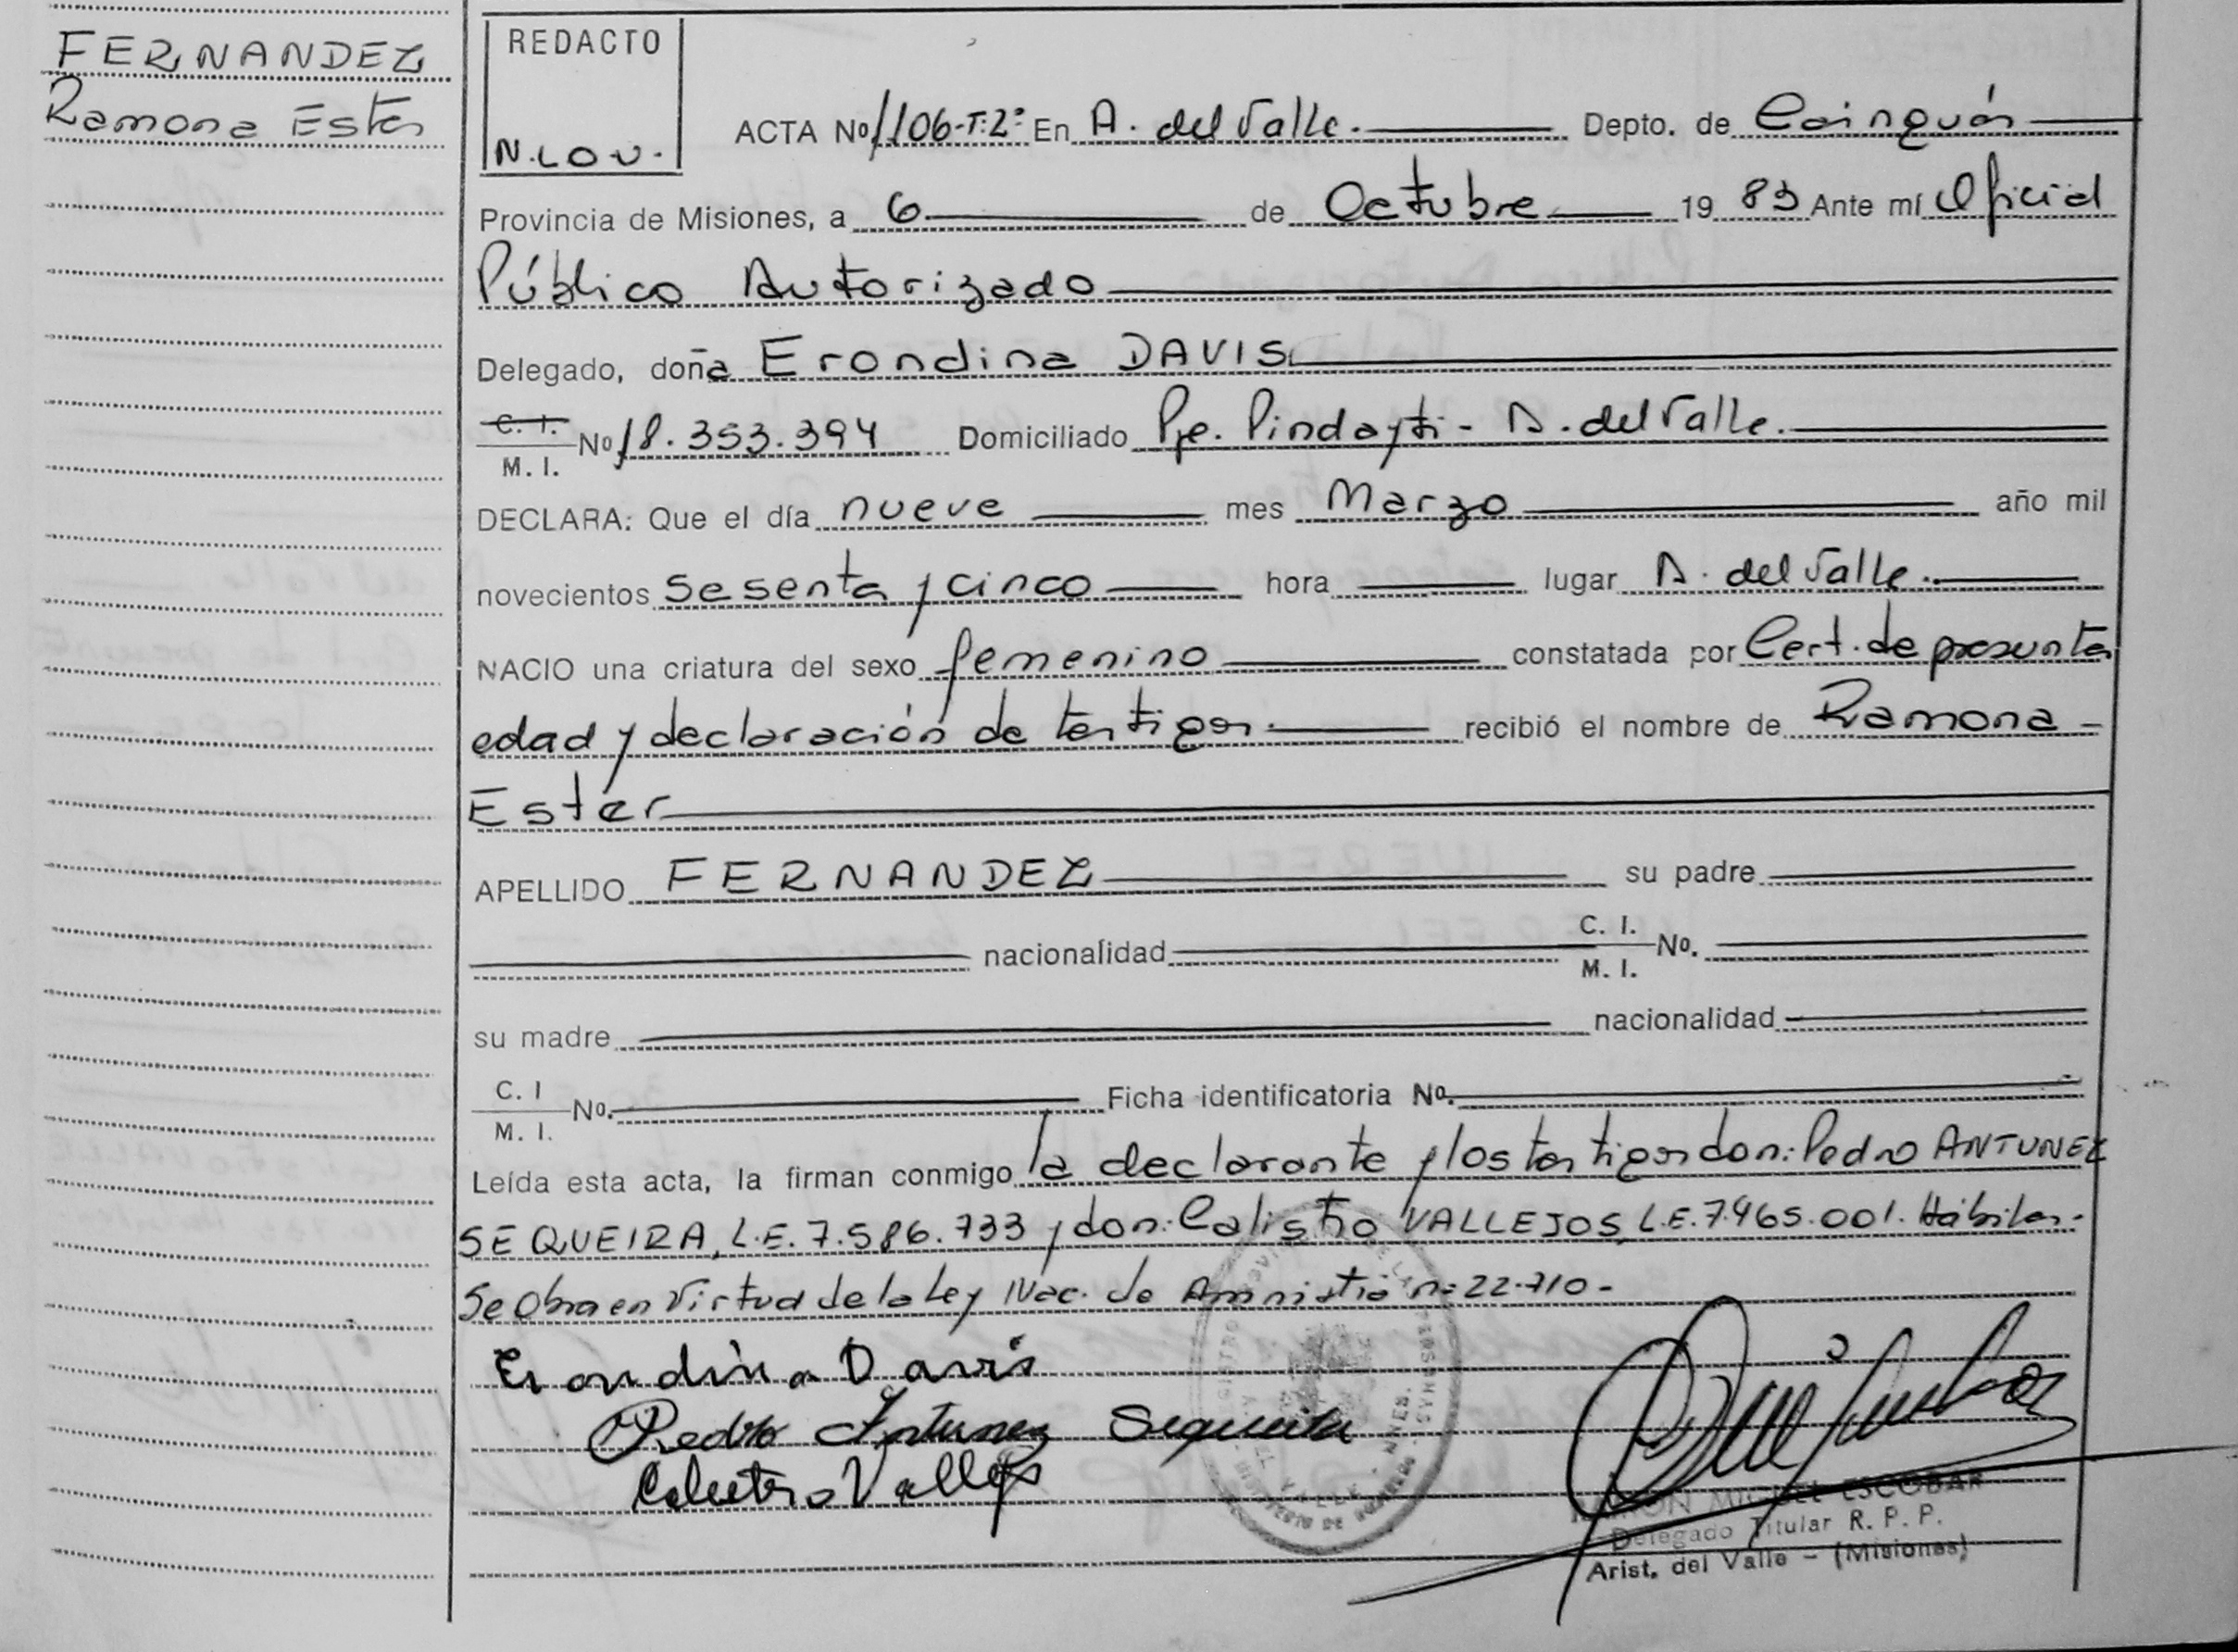 FERNANDEZ
Ramona Ester
REDACTO
N.LOV.
ACTA No 1106-T:2º En A. del Valle. Depto. de Cainguás
Provincia de Misiones, a 6 de Octubre 19 83 Ante mí Oficial
Público Autorizado
Delegado, doña Erondina DAVIS
C. I. M. I. No 18.353.394 Domiciliado Pje. Pindayti - A. del Valle.
DECLARA: Que el día nueve mes Marzo año mil
novecientos sesenta y cinco hora lugar A. del Valle.
NACIO una criatura del sexo femenino constatada por Cert. de presunta
edad y declaración de testigos. recibió el nombre de Ramona
Ester
APELLIDO FERNANDEZ su padre
nacionalidad C. I. M. I. No.
su madre nacionalidad
C. I M. I. No. Ficha identificatoria No.
Leída esta acta, la firman conmigo la declarante y los testigos don: Pedro ANTUNEZ
SEQUEIRA, L.E. 7.586.733 y don: Calistro VALLEJOS, L.E. 7.465.001. Hábiles.
Se Obra en Virtud de la Ley Nac. de Amnistía n: 22.710-
Erondina Davis
Pedro Antunez Sequeira
Calistro Vallejos
RAMON MIGUEL ESCOBAR
Delegado Titular R. P. P.
Arist. del Valle - (Misiones)